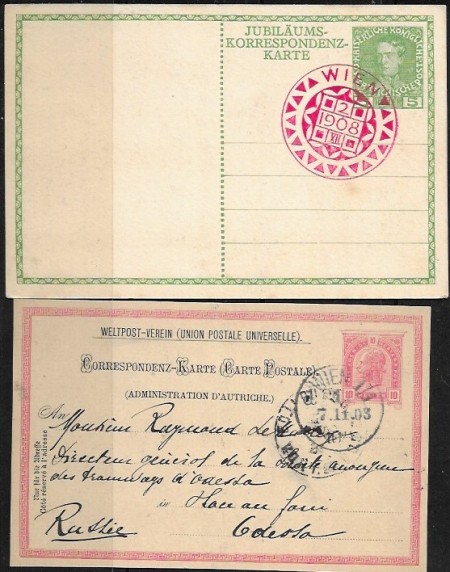 JUBILÄUMS-
KORRESPONDENZ-
KARTE
5
WIEN
2
1908
VII
WELTPOST-VEREIN (UNION POSTALE UNIVERSELLE).
CORRESPONDENZ-KARTE (CARTE POSTALE)
(ADMINISTRATION D'AUTRICHE).
10 10
WIEN
7.11.03
An
Monsieur Raymond
Directeur général de la Société anonyme
des tramways d'Odessa
in
Russie
Odessa
Nur für die Adresse
Côté réservé à l'adresse